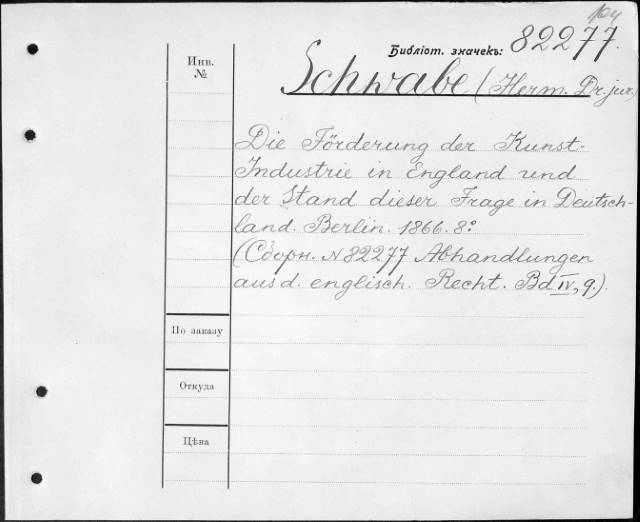 Библіот. значекъ: 82277.
Инв. №
Schwabe (Herm. Dr. jur.)
Die Förderung der Kunst-
Industrie in England und
der Stand dieser Frage in Deutsch-
land. Berlin. 1866. 8º
(Сборн. N 82277 Abhandlungen
aus d. englisch. Recht. Bd IV, 9.).
По заказу
Откуда
Цѣна